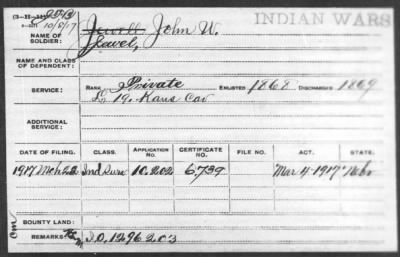 INDIAN WARS
10/8/17
NAME OF SOLDIER: Jewell John W.
Jewel,
NAME AND CLASS OF DEPENDENT:
SERVICE: RANK Private ENLISTED 1868 DISCHARGED 1869
L 19. Kans Cav
ADDITIONAL SERVICE:
DATE OF FILING. CLASS. APPLICATION NO. CERTIFICATE NO. FILE NO. ACT. STATE.
1917 Mch 22 Ind Surv 10.202 6.739 Mar 4-1917 Nebr
BOUNTY LAND:
REMARKS: S.O. 1296203